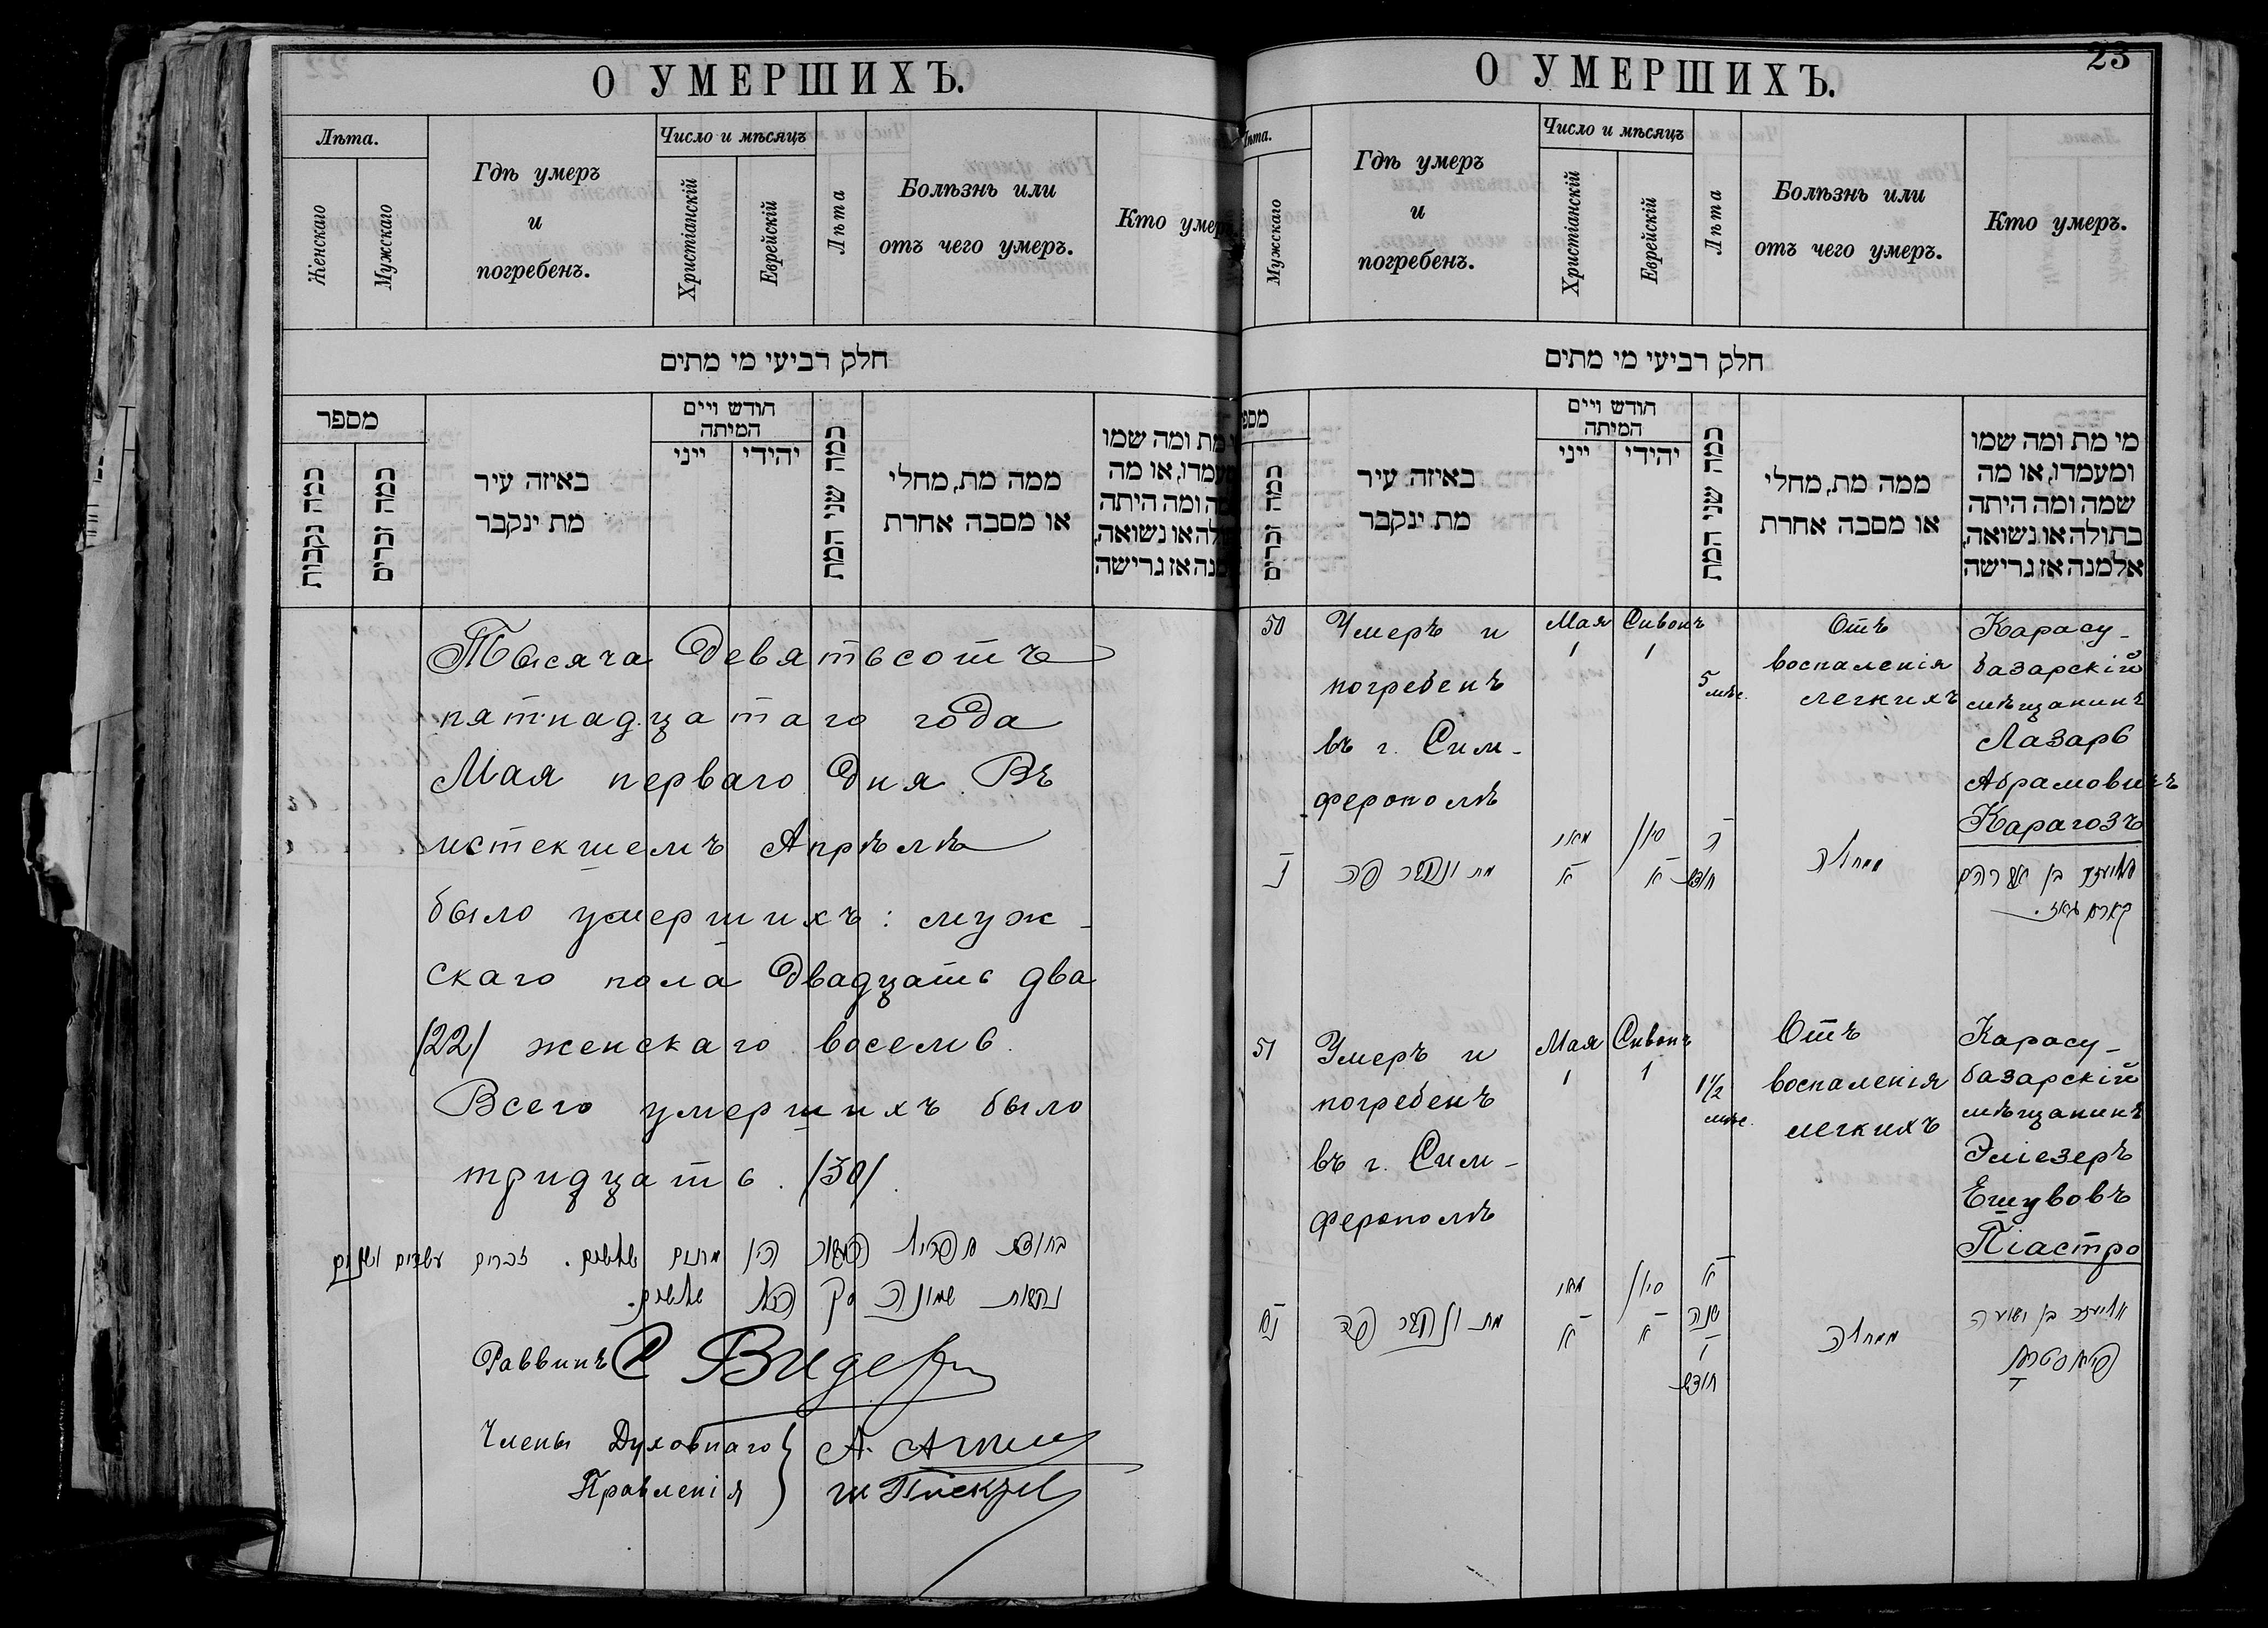 О УМЕРШИХЪ.
Лѣта.
Женскаго
Мужскаго
Гдѣ умеръ
и
погребенъ.
Число и мѣсяцъ
Христіанскій
Еврейскій
Лѣта
Болѣзнь или
отъ чего умеръ.
Кто умеръ
חלק רביעי מי מתים
מספר
כמה נקבות
כמה זכרים
באיזה עיר
מת ינקבר
חודש ויים
המיתה
יהידי
ייני
כמה שני המת
ממה מת, מחלי
או מסבה אחרת
מת ומה שמו
ומה היתה
או נשואה,
או גרישה
Тысяча девятьсотъ
пятнадцатаго года
Мая перваго дня. Въ
истекшемъ Апрѣлѣ
было умершихъ: муж-
скаго пола двадцать два
/22/ женскаго восемь.
Всего умершихъ было
тридцать. /30/.
זכרים עשרים ושנים
נקבות שמונה סך הכל שלשים.
Раввинъ
Члены Духовнаго
Правленія
О УМЕРШИХЪ.
23
Лѣта.
Мужскаго
Гдѣ умеръ
и
погребенъ.
Число и мѣсяцъ
Христіанскій
Еврейскій
Лѣта
Болѣзнь или
отъ чего умеръ.
Кто умеръ.
חלק רביעי מי מתים
מספ
כמה זכרים
באיזה עיר
מת ינקבר
חודש ויים
המיתה
יהידי
ייני
כמה שני המת
ממה מת, מחלי
או מסבה אחרת
מי מת ומה שמו
ומעמדו, או מה
שמה ומה היתה
בתולה או נשואה,
אלמנה או גרישה
50
Умеръ и
погребенъ
въ г. Сим-
ферополѣ
Мая
1
Сивонъ
1
5
мѣс.
Отъ
воспаленія
легкихъ
Карасу-
базарскій
мѣщанинъ
Лазарь
Абрамовичъ
Карагозъ
נ
מת ונקבר פה
מאי
א
סיון
א
ה
חודש
ממחלה
51
Умеръ и
погребенъ
въ г. Сим-
ферополѣ
Мая
1
Сивонъ
1
1 1/2
мѣс.
Отъ
воспаленія
легкихъ
Карасу-
базарскій
мѣщанинъ
Эліезеръ
Ешувовъ
Піастро
נא
מת ונקבר פה
מאי
א
סיון
א
א
שנה
ו
חודש
ממחלה
אליעזר בן ישועה